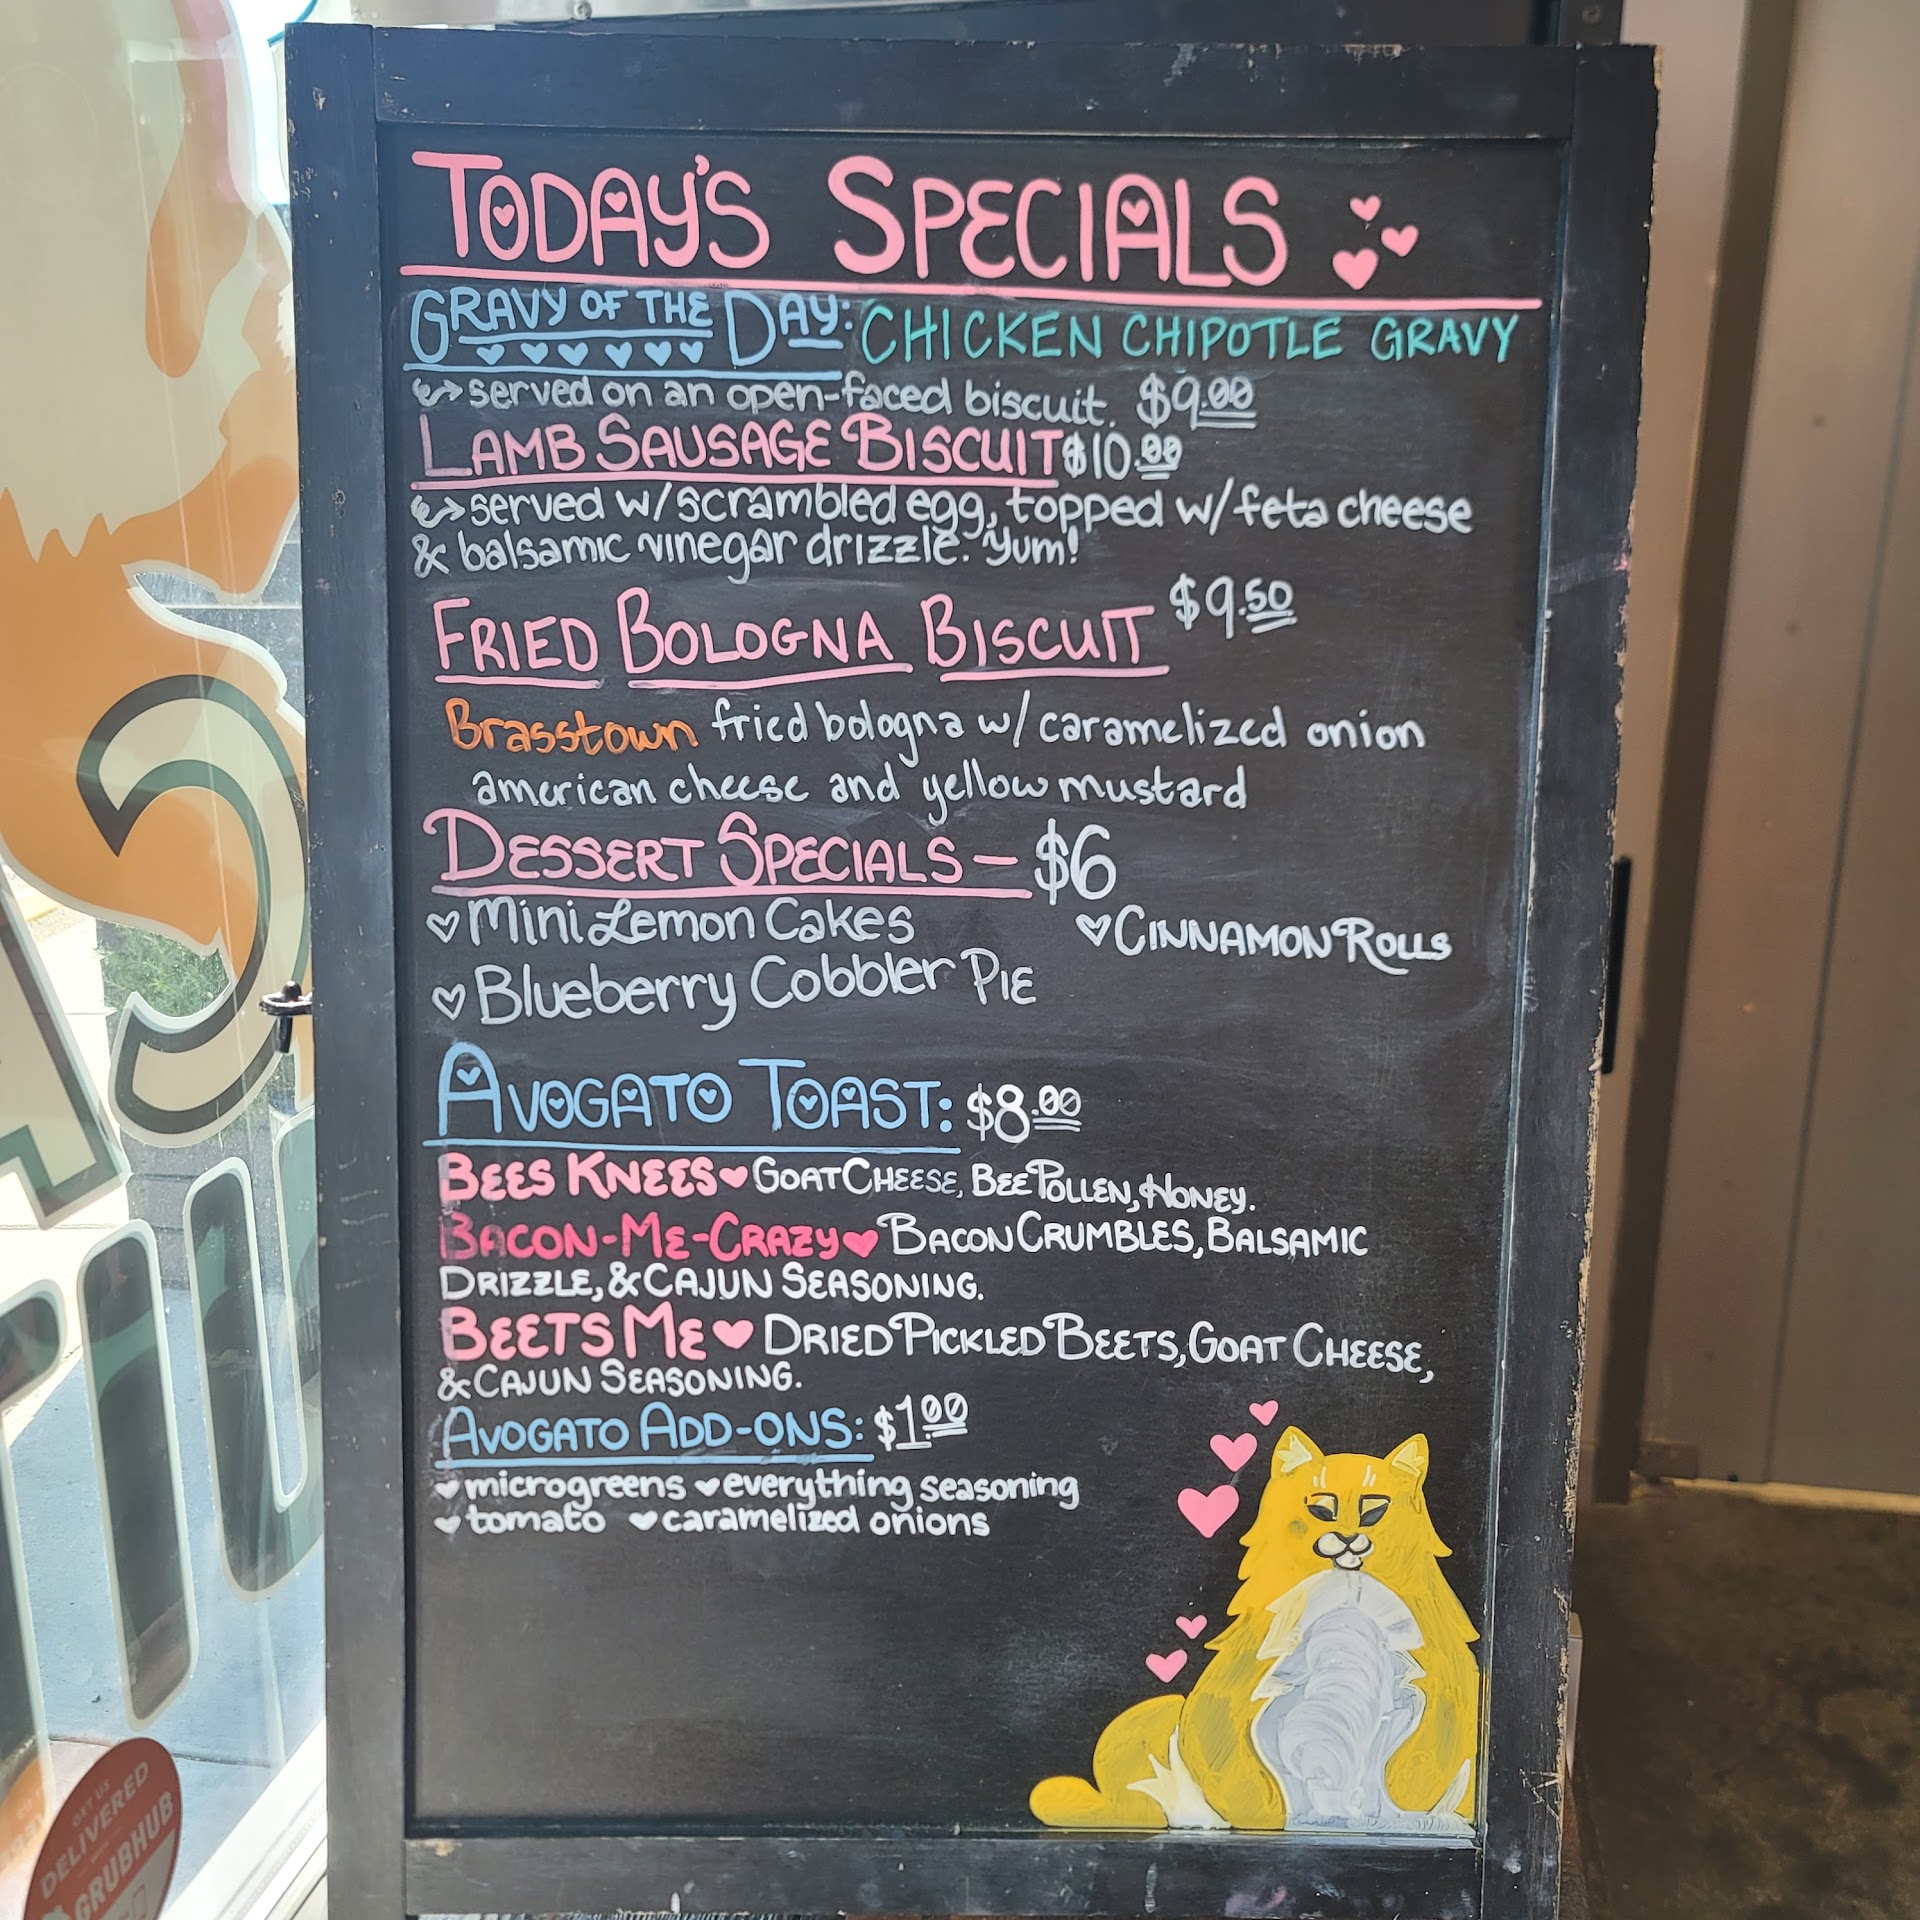 TODAY'S SPECIALS
GRAVY OF THE DAY: CHICKEN CHIPOTLE GRAVY
served on an open-faced biscuit. $9.00
LAMB SAUSAGE BISCUIT $10.00
served w/ scrambled egg, topped w/ feta cheese
& balsamic vinegar drizzle. Yum!
FRIED BOLOGNA BISCUIT $9.50
Brasstown fried bologna w/ caramelized onion
american cheese and yellow mustard
DESSERT SPECIALS — $6
Mini Lemon Cakes CINNAMON ROLLS
Blueberry Cobbler Pie
AVOGATO TOAST: $8.00
BEES KNEES GOAT CHEESE, BEE POLLEN, HONEY.
BACON-ME-CRAZY BACON CRUMBLES, BALSAMIC
DRIZZLE, & CAJUN SEASONING.
BEETS ME DRIED PICKLED BEETS, GOAT CHEESE,
& CAJUN SEASONING.
AVOGATO ADD-ONS: $1.00
microgreens everything seasoning
tomato caramelized onions
GET US
DELIVERED
GRUBHUB